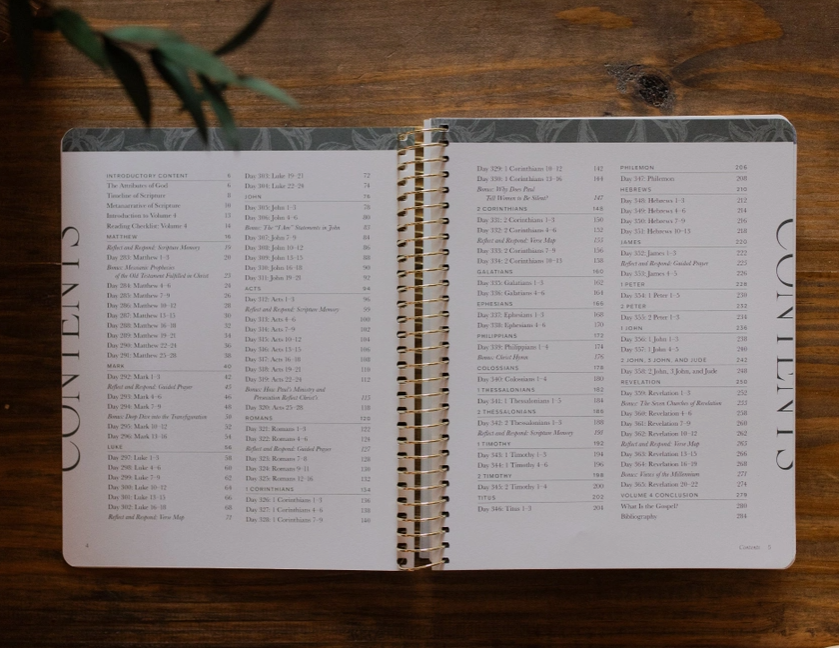 CONTENTS
INTRODUCTORY CONTENT 6
The Attributes of God 6
Timeline of Scripture 8
Metanarrative of Scripture 10
Introduction to Volume 4 13
Reading Checklist: Volume 4 14
MATTHEW
Reflect and Respond: Scripture Memory 19
Day 283: Matthew 1–3 20
Bonus: Messianic Prophecies
of the Old Testament Fulfilled in Christ 23
Day 284: Matthew 4–6 24
Day 285: Matthew 7–9 26
Day 286: Matthew 10–12 28
Day 287: Matthew 13–15 30
Day 288: Matthew 16–18 32
Day 289: Matthew 19–21 34
Day 290: Matthew 22–24 36
Day 291: Matthew 25–28 38
MARK 40
Day 292: Mark 1–3 42
Reflect and Respond: Guided Prayer 45
Day 293: Mark 4–6 46
Day 294: Mark 7–9 48
Bonus: Deep Dive into the Transfiguration 50
Day 295: Mark 10–12 52
Day 296: Mark 13–16 54
LUKE 56
Day 297: Luke 1–3 58
Day 298: Luke 4–6 60
Day 299: Luke 7–9 62
Day 300: Luke 10–12 64
Day 301: Luke 13–15 66
Day 302: Luke 16–18 68
Reflect and Respond: Verse Map 71
Day 303: Luke 19–21 72
Day 304: Luke 22–24 74
JOHN 76
Day 305: John 1–3 78
Day 306: John 4–6 80
Bonus: The "I Am" Statements in John 83
Day 307: John 7–9 84
Day 308: John 10–12 86
Day 309: John 13–15 88
Day 310: John 16–18 90
Day 311: John 19–21 92
ACTS 94
Day 312: Acts 1–3 96
Reflect and Respond: Scripture Memory 99
Day 313: Acts 4–6 100
Day 314: Acts 7–9 102
Day 315: Acts 10–12 104
Day 316: Acts 13–15 106
Day 317: Acts 16–18 108
Day 318: Acts 19–21 110
Day 319: Acts 22–24 112
Bonus: How Paul's Ministry and
Persecution Reflect Christ's 115
Day 320: Acts 25–28 118
ROMANS 120
Day 321: Romans 1–3 122
Day 322: Romans 4–6 124
Reflect and Respond: Guided Prayer 127
Day 323: Romans 7–8 128
Day 324: Romans 9–11 130
Day 325: Romans 12–16 132
1 CORINTHIANS 134
Day 326: 1 Corinthians 1–3 136
Day 327: 1 Corinthians 4–6 138
Day 328: 1 Corinthians 7–9 140
4
Day 329: 1 Corinthians 10–12 142
Day 330: 1 Corinthians 13–16 144
Bonus: Why Does Paul
Tell Women to Be Silent? 147
2 CORINTHIANS 148
Day 331: 2 Corinthians 1–3 150
Day 332: 2 Corinthians 4–6 152
Reflect and Respond: Verse Map 155
Day 333: 2 Corinthians 7–9 156
Day 334: 2 Corinthians 10–13 158
GALATIANS 160
Day 335: Galatians 1–3 162
Day 336: Galatians 4–6 164
EPHESIANS 166
Day 337: Ephesians 1–3 168
Day 338: Ephesians 4–6 170
PHILIPPIANS 172
Day 339: Philippians 1–4 174
Bonus: Christ Hymn 176
COLOSSIANS 178
Day 340: Colossians 1–4 180
1 THESSALONIANS 182
Day 341: 1 Thessalonians 1–5 184
2 THESSALONIANS 186
Day 342: 2 Thessalonians 1–3 188
Reflect and Respond: Scripture Memory 191
1 TIMOTHY 192
Day 343: 1 Timothy 1–3 194
Day 344: 1 Timothy 4–6 196
2 TIMOTHY 198
Day 345: 2 Timothy 1–4 200
TITUS 202
Day 346: Titus 1–3 204
PHILEMON 206
Day 347: Philemon 208
HEBREWS 210
Day 348: Hebrews 1–3 212
Day 349: Hebrews 4–6 214
Day 350: Hebrews 7–9 216
Day 351: Hebrews 10–13 218
JAMES 220
Day 352: James 1–3 222
Reflect and Respond: Guided Prayer 225
Day 353: James 4–5 226
1 PETER 228
Day 354: 1 Peter 1–5 230
2 PETER 232
Day 355: 2 Peter 1–3 234
1 JOHN 236
Day 356: 1 John 1–3 238
Day 357: 1 John 4–5 240
2 JOHN, 3 JOHN, AND JUDE 242
Day 358: 2 John, 3 John, and Jude 248
REVELATION 250
Day 359: Revelation 1–3 252
Bonus: The Seven Churches of Revelation 255
Day 360: Revelation 4–6 258
Day 361: Revelation 7–9 260
Day 362: Revelation 10–12 262
Reflect and Respond: Verse Map 265
Day 363: Revelation 13–15 266
Day 364: Revelation 16–19 268
Bonus: Views of the Millennium 271
Day 365: Revelation 20–22 274
VOLUME 4 CONCLUSION 279
What Is the Gospel? 280
Bibliography 284
Contents 5
CONTENTS